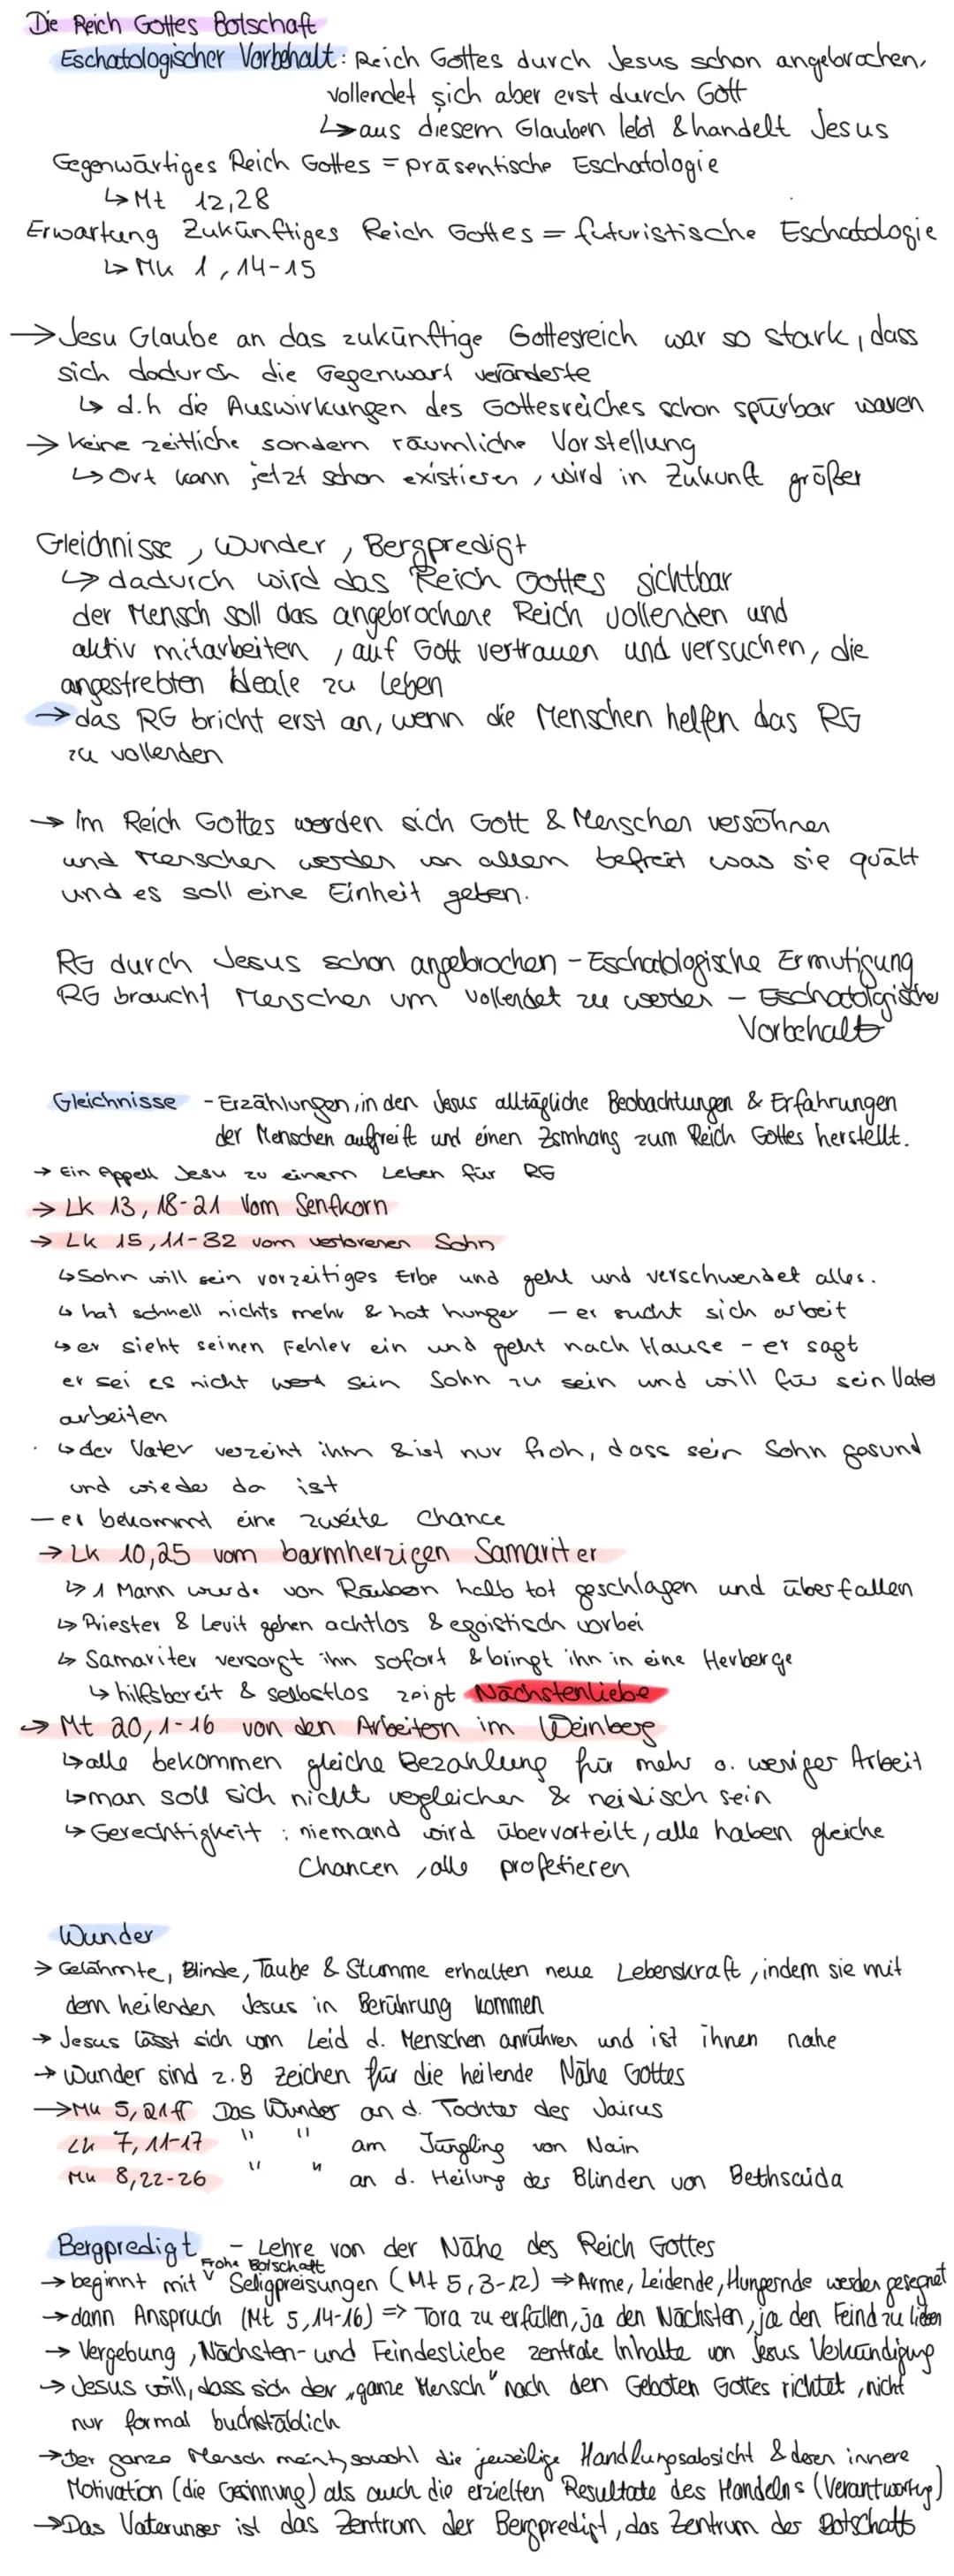 Die Reich Gottes Botschaft
Eschatologischer Vorbehalt: Reich Gottes durch Jesus schon angebrochen,
vollendet sich aber erst durch Gott
↳ aus diesem Glauben lebt & handelt Jesus
Gegenwärtiges Reich Gottes = präsentische Eschatologie
↳ Mt 12,28
Erwartung Zukünftiges Reich Gottes = futuristische Eschatologie
↳ Mk 1,14-15
→ Jesu Glaube an das zukünftige Gottesreich war so stark, dass
sich dadurch die Gegenwart veränderte
↳ d.h die Auswirkungen des Gottesreiches schon spürbar waren
→ keine zeitliche sondern räumliche Vorstellung
↳ Ort kann jetzt schon existieren, wird in Zukunft größer
Gleichnisse, Wunder, Bergpredigt
↳ dadurch wird das Reich Gottes sichtbar
der Mensch soll das angebrochene Reich vollenden und
aktiv mitarbeiten, auf Gott vertrauen und versuchen, die
angestrebten Ideale zu leben
→ das RG bricht erst an, wenn die Menschen helfen das RG
zu vollenden
→ Im Reich Gottes werden sich Gott & Menschen versöhnen
und Menschen werden von allem befreit was sie quält
und es soll eine Einheit geben.
RG durch Jesus schon angebrochen - Eschatologische Ermutigung
RG braucht Menschen um vollendet zu werden - Eschatolgische
Vorbehalt
Gleichnisse - Erzählungen, in den Jesus alltägliche Beobachtungen & Erfahrungen
der Menschen aufgreift und einen Zsmhang zum Reich Gottes herstellt.
→ Ein Appell Jesu zu einem Leben für RG
→ Lk 13,18-21 Vom Senfkorn
→ Lk 15,11-32 vom verlorenen Sohn
↳ Sohn will sein vorzeitiges Erbe und geht und verschwendet alles.
↳ hat schnell nichts mehr & hat hunger - er sucht sich arbeit
↳ er sieht seinen Fehler ein und geht nach Hause - er sagt
er sei es nicht wert sein Sohn zu sein und will für sein Vater
arbeiten
↳ der Vater verzeiht ihm & ist nur froh, dass sein Sohn gesund
und wieder da ist
- er bekommt eine zweite Chance
→ Lk 10,25 vom barmherzigen Samariter
↳ 1 Mann wurde von Räubern halb tot geschlagen und überfallen
↳ Priester & Levit gehen achtlos & egoistisch vorbei
↳ Samariter versorgt ihn sofort & bringt ihn in eine Herberge
↳ hilfsbereit & selbstlos zeigt Nächstenliebe
→ Mt 20,1-16 von den Arbeitern im Weinberg
↳ alle bekommen gleiche Bezahlung für mehr o. weniger Arbeit
↳ man soll sich nicht vergleichen & neidisch sein
↳ Gerechtigkeit: niemand wird übervorteilt, alle haben gleiche
Chancen, alle profetieren
Wunder
→ Gelähmte, Blinde, Taube & Stumme erhalten neue Lebenskraft, indem sie mit
dem heilenden Jesus in Berührung kommen
→ Jesus lässt sich vom Leid d. Menschen anrühren und ist ihnen nahe
→ Wunder sind z.B Zeichen für die heilende Nähe Gottes
→ Mk 5,21ff Das Wunder an d. Tochter des Jairus
Lk 7,11-17 " " am Jüngling von Nain
Mk 8,22-26 " " an d. Heilung des Blinden von Bethsaida
Bergpredigt - Lehre von der Nähe des Reich Gottes
Frohe Botschaft
→ beginnt mit ᵛ Seligpreisungen (Mt 5,3-12) ⇒ Arme, Leidende, Hungernde werden gesegnet
→ dann Anspruch (Mt 5,14-16) => Tora zu erfüllen, ja den Nächsten, ja den Feind zu lieben
→ Vergebung, Nächsten- und Feindesliebe zentrale Inhalte von Jesus Verkündigung
→ Jesus will, dass sich der „ganze Mensch" nach den Geboten Gottes richtet, nicht
nur formal buchstäblich
→ Der ganze Mensch meint, sowohl die jeweilige Handlungsabsicht & deren innere
Motivation (die Gesinnung) als auch die erzielten Resultate des Handelns (Verantwortung)
→ Das Vaterunser ist das Zentrum der Bergpredigt, das Zentrum der Botschaft